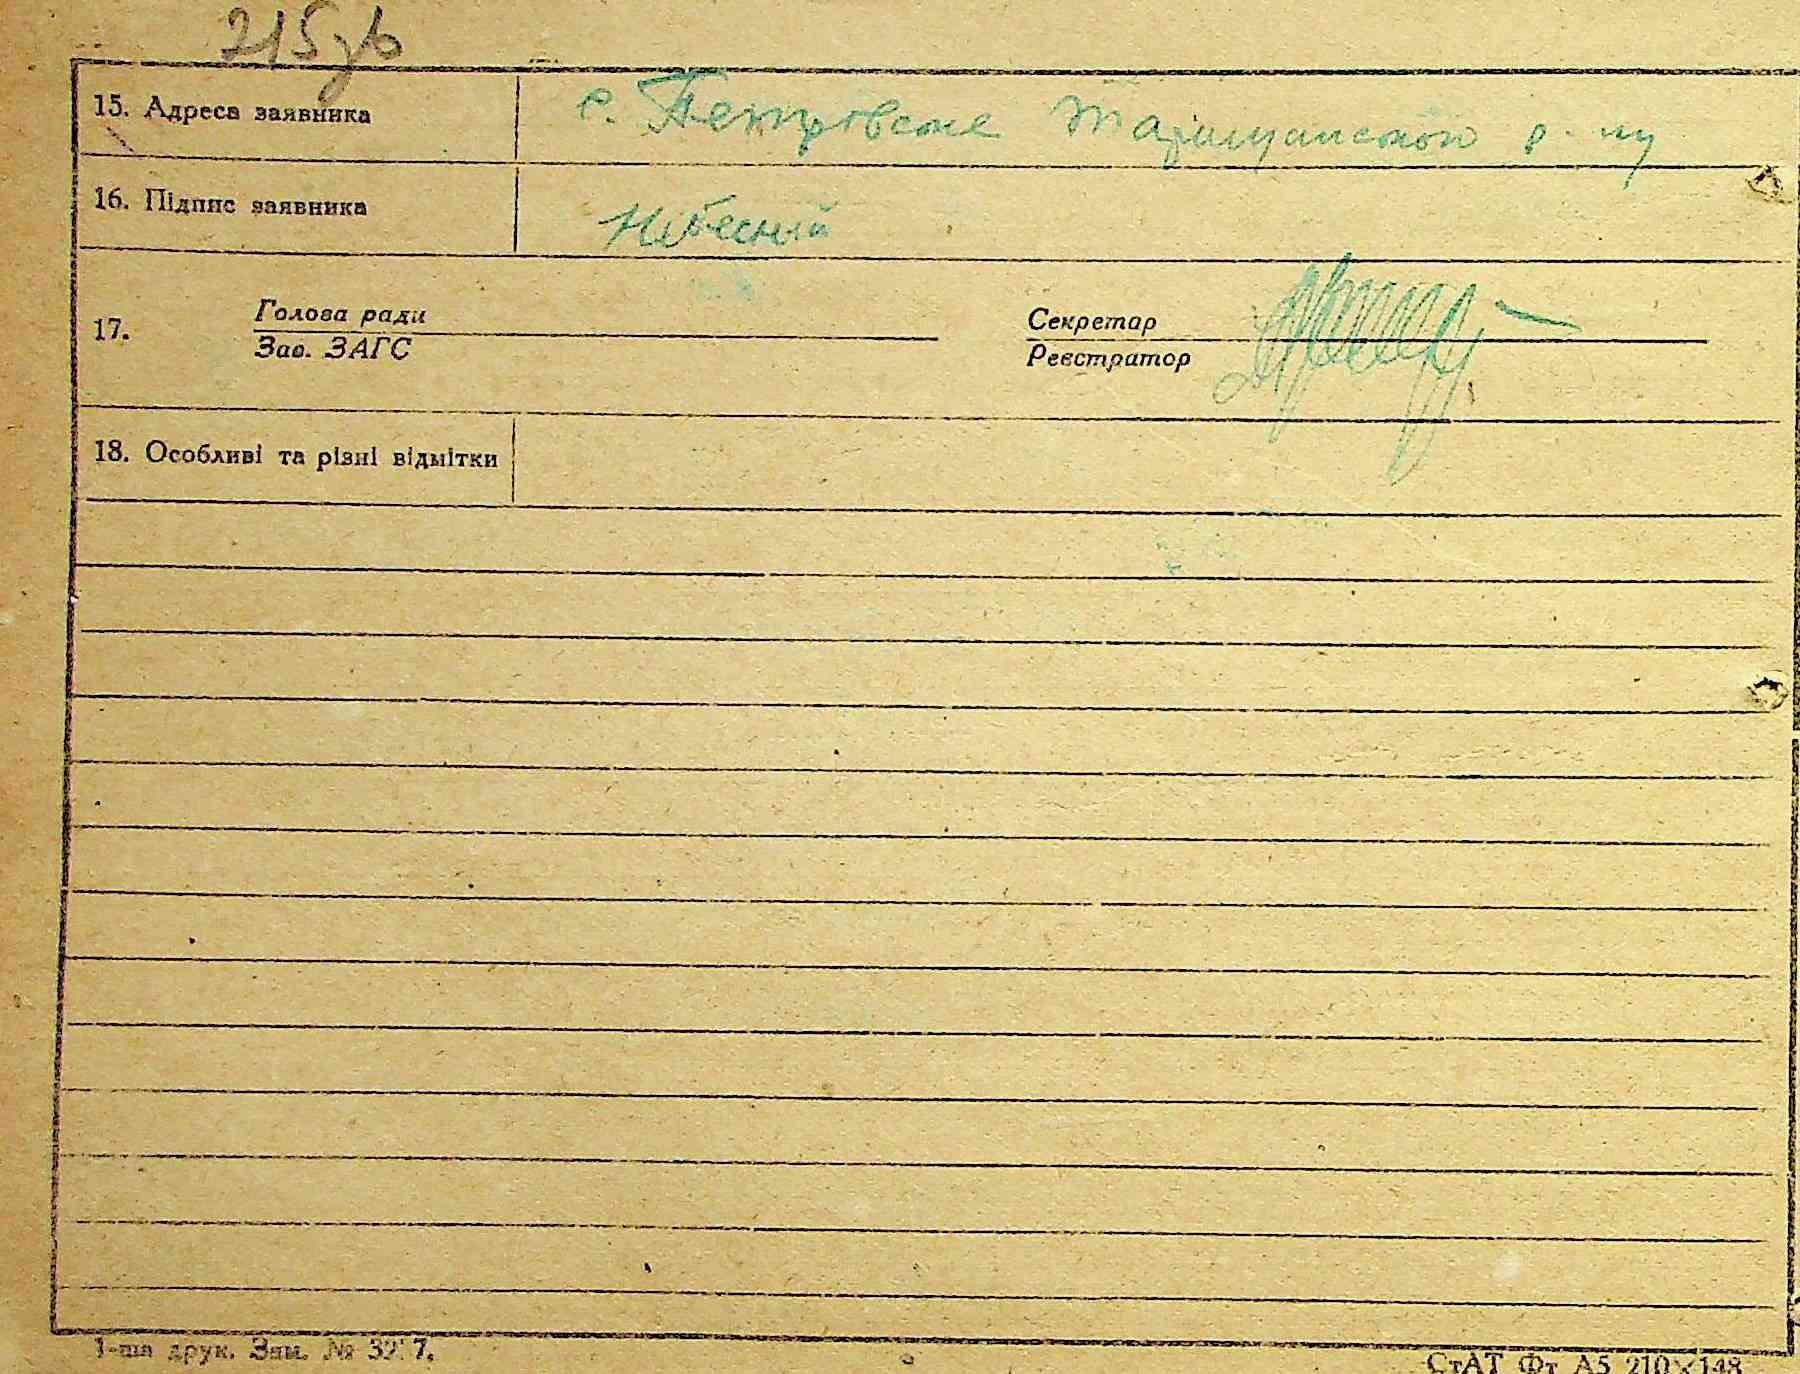 215зв
15. Адреса заявника с. Петровське Таращанського р-ну
16. Підпис заявника Небесний
17. Голова ради Секретар
Зав. ЗАГС Реєстратор
18. Особливі та різні відмітки
1-ша друк. Зам. №
СтАТ Фт А5 210×148